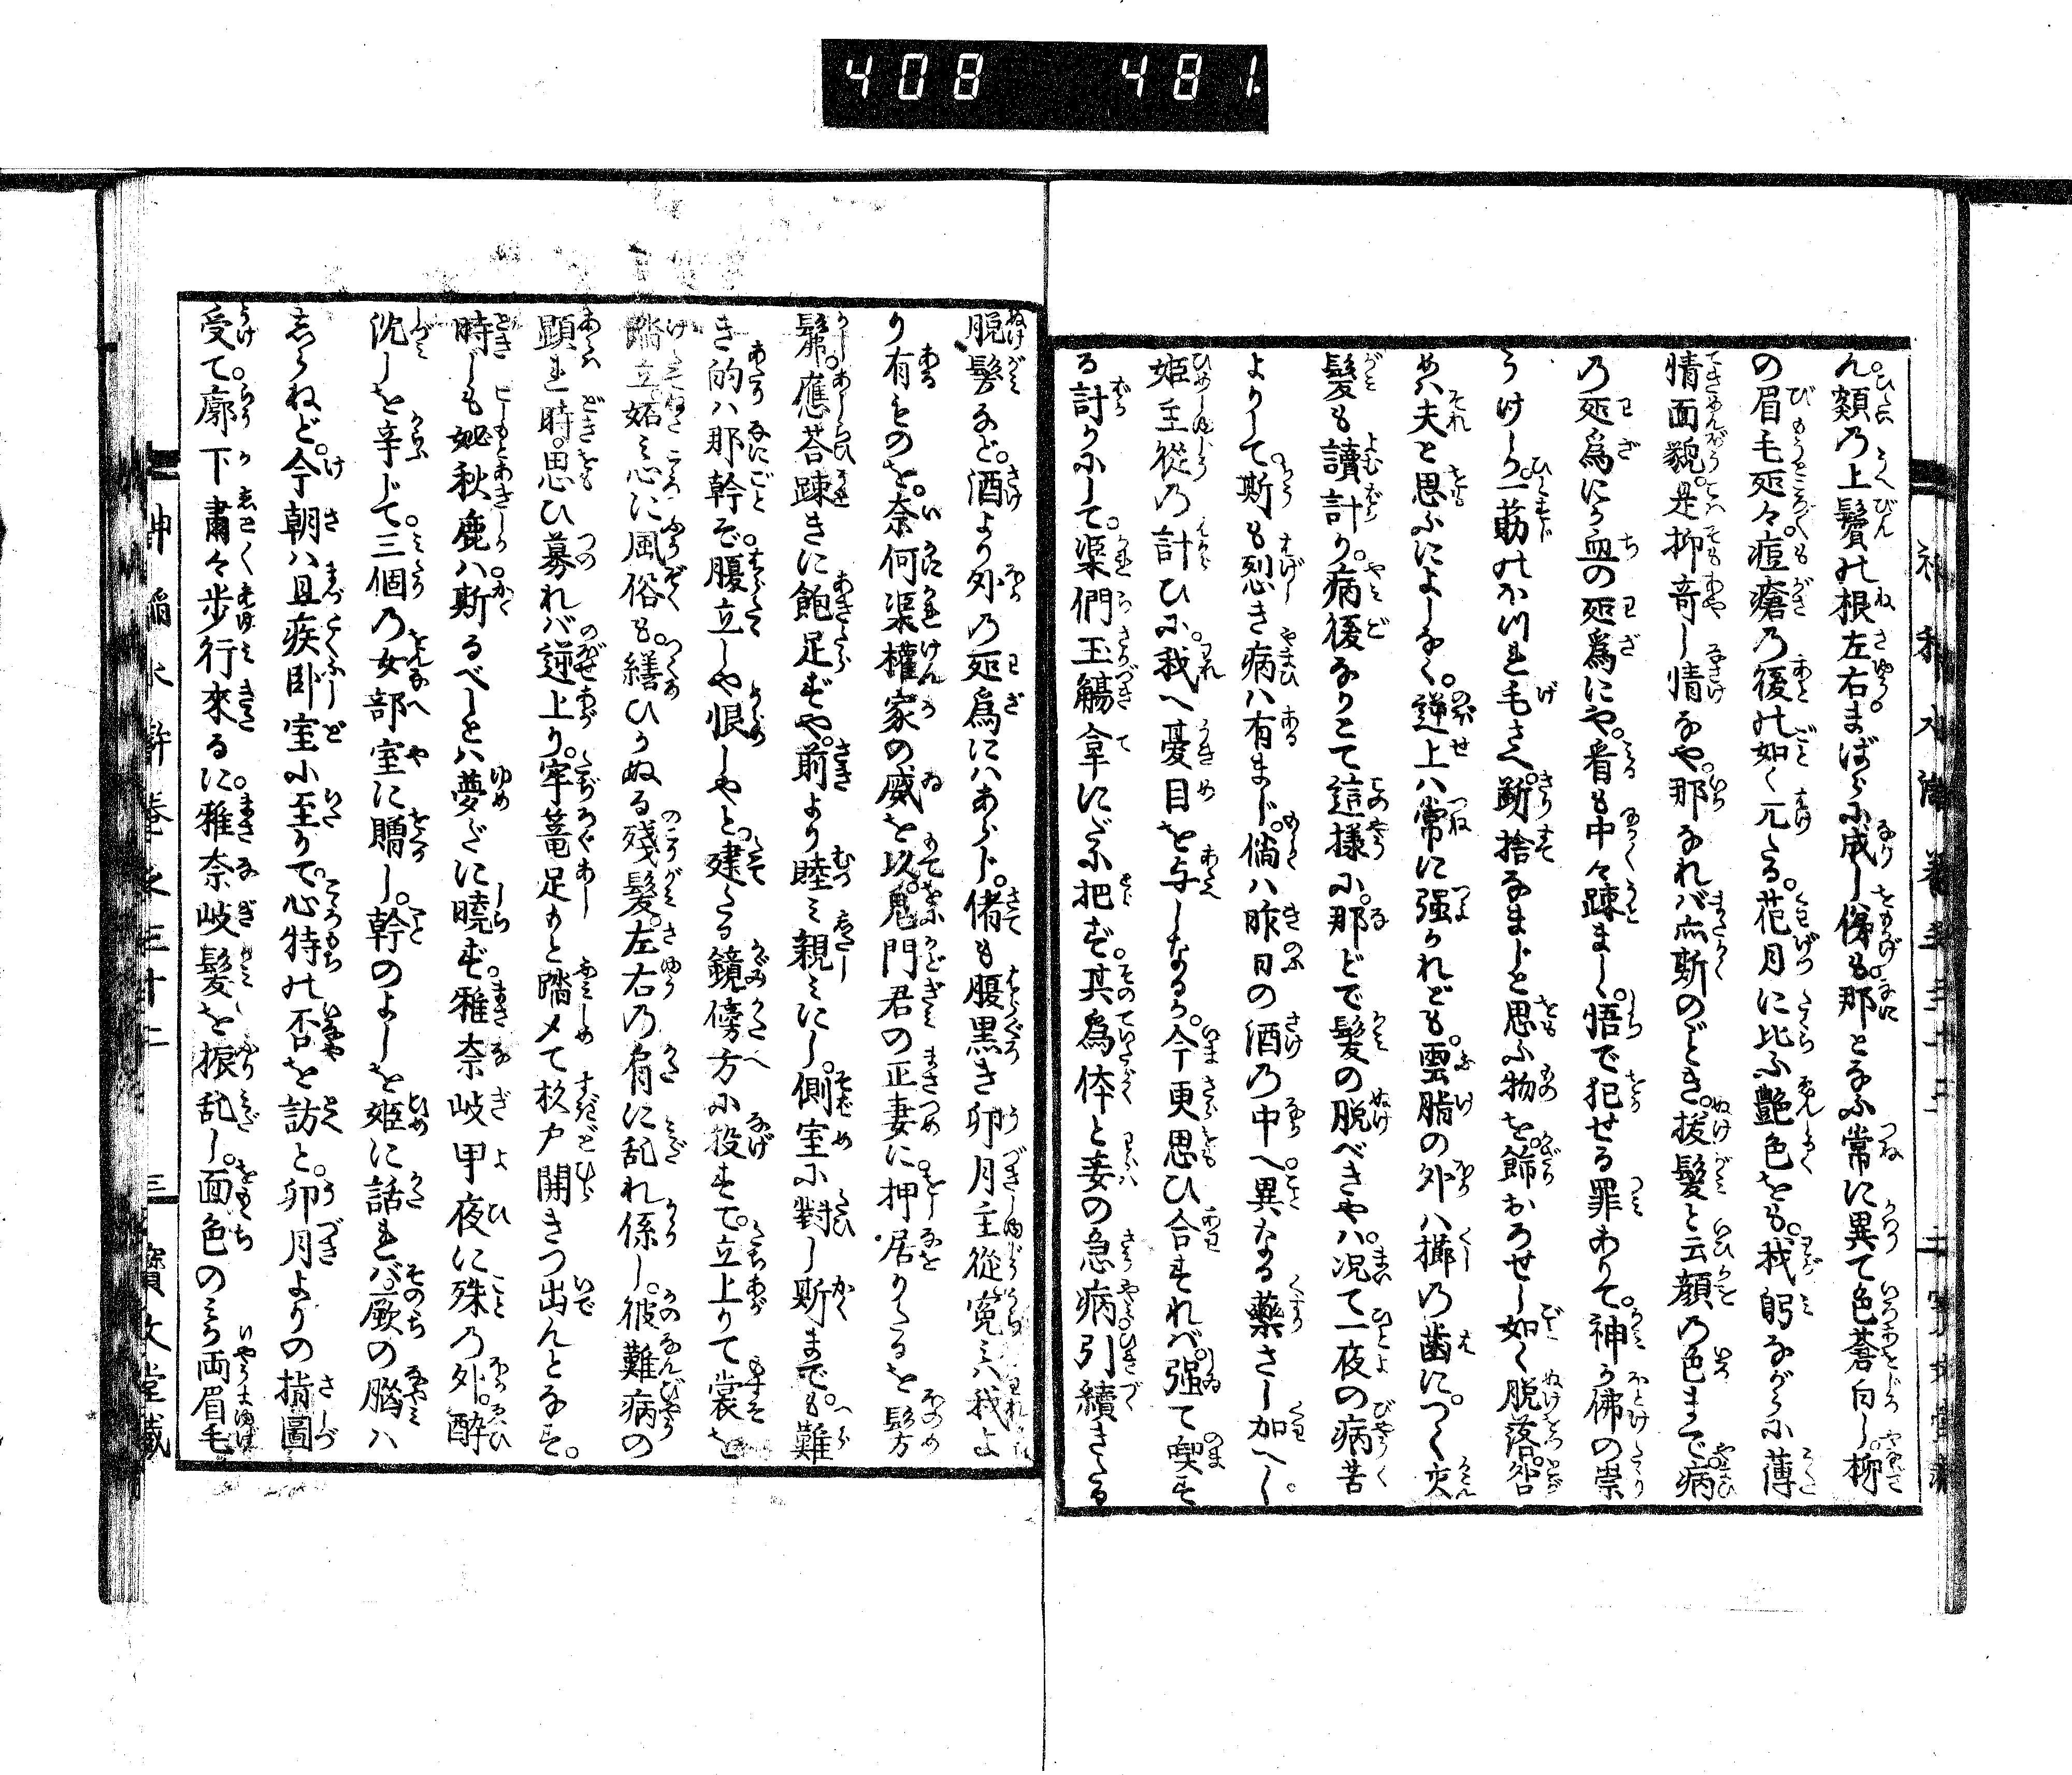 408 481.
ん。額乃上鬢の根左右。まばらに成し俤も。那となふ常に異て色蒼白し。柳
の眉毛処々。痘瘡乃後の如く兀たる。花月に比ふ艶色をも。我躬ながらに薄
情面貌。是抑奇し情なや。那なれバ斯のごとき。抜髪と云顔乃色まで。病
乃所為にか血の所為にや。看も中々疎まし。悟で犯せる罪ありて。神か佛の祟
うけしか。一筋のほつれ毛さへ。断捨るまじと思ふ物を。飾おろせし如く脱落。
めハ夫と思ふによしなく。逆上ハ常に强かれども。雲脂の外ハ擲乃歯に。つく
髪も讀計り。病後なりとて這様に。那どで髪の脱べきや。况て一夜の病苦
よりして。斯も烈き病ハ有まじ。倘ハ昨日の酒乃中へ。異なる藥さし加へし。
姫主從乃計ひに。我へ憂目を与しなるか。今更思ひ合すれバ。强て喫す
る計りにして。渠們玉觴拿にだに把ず。其為体と妾の急病引續きたる
脱髪など。酒より外乃所為にハあらじ。偖も腹黒き卯月主從。寃ミハ我よ
り有ものを。奈何渠權家の威を以。鬼門君の正妻に押居りたるを髣
髴。應荅踈きに飽足ずや。前より睦ミ親ミにし。側室に對し斯までも。難
き的ハ那幹ぞ。腹立しや恨しやと。建たる鏡傍方に投すて。立上りて裳を
踏立妬ミ心に風俗も。繕ひかぬる殘髮。左右乃肩に乱れ係し。彼難病の
顕れ時。思ひ募れバ逆上り。牢篭足もと踏〆て杉戸開きつ出んとなす。
時しも妣秋鹿ハ斯るべしとハ夢だに曉ず。雅奈岐甲夜に殊乃外。酔
沈しを辛じて。三個乃女部室に贈し。幹のよしを姫に話れバ。厥の腦ハ
志らねど。今朝ハ且疾卧室に至りて。心特の否を訪と。卯月よりの指圖
受て。廓下肅々步行來るに。雅奈岐髮を振乱し。面色のミか両眉毛
神稲水滸巻之三十二 三 寳文堂藏